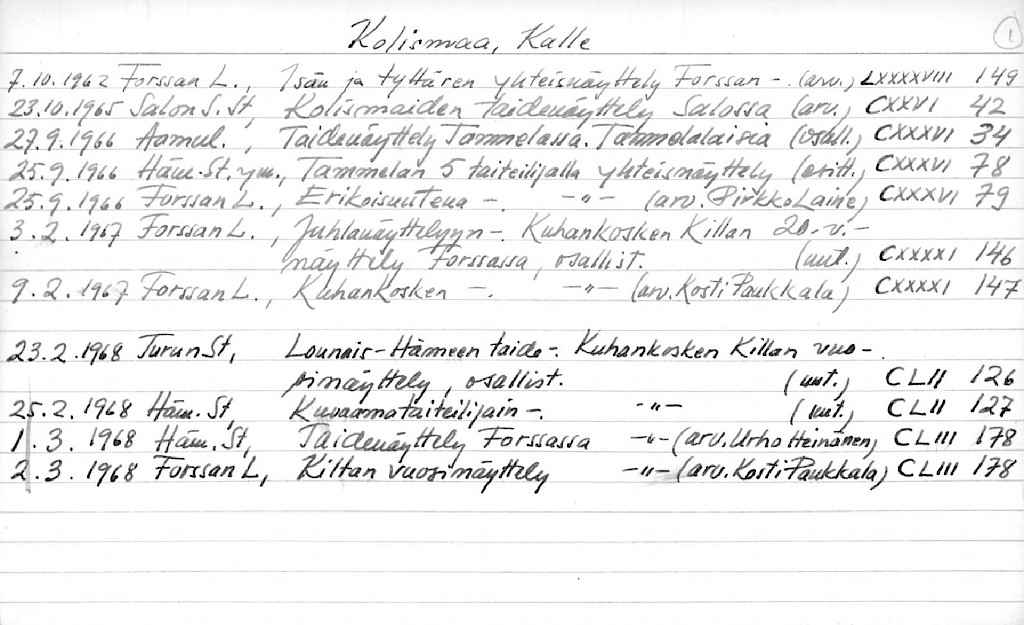 Kolismaa, Kalle
1
7.10.1962 Forssan L., Isän ja tyttären yhteisnäyttely Forssan -. (arv.) LXXXXVIII 149
23.10.1965 Salon S. St, Kolismaiden taidenäyttely Salossa (arv.) CXXVI 42
27.9.1966 Aamul., Taidenäyttely Tammelassa. Tammelalaisia (osall.) CXXXVI 34
25.9.1966 Häm. St. ym., Tammelan 5 taiteilijalla yhteisnäyttely (esitt., CXXXVI 78
25.9.1966 Forssan L., Erikoisuutena -. -"- (arv. Pirkko Laine) CXXXVI 79
3.2.1967 Forssan L., Juhlanäyttelyyn -. Kuhankosken Killan 20.-v.-
näyttely Forssassa, osallist. (uut.) CXXXXI 146
9.2.1967 Forssan L., Kuhankosken -. -"- (arv. Kosti Paukkala) CXXXXI 147
23.2.1968 Turun St, Lounais-Hämeen taide-. Kuhankosken Killan vuo-
sinäyttely, osallist. (uut.) CLII 126
25.2.1968 Häm. St, Kuvaamataiteilijain -. -"- (uut.) CLII 127
1.3.1968 Häm. St, Taidenäyttely Forssassa -"- (arv. Urho Heinänen) CLIII 178
2.3.1968 Forssan L, Killan vuosinäyttely -"- (arv. Kosti Paukkala) CLIII 178